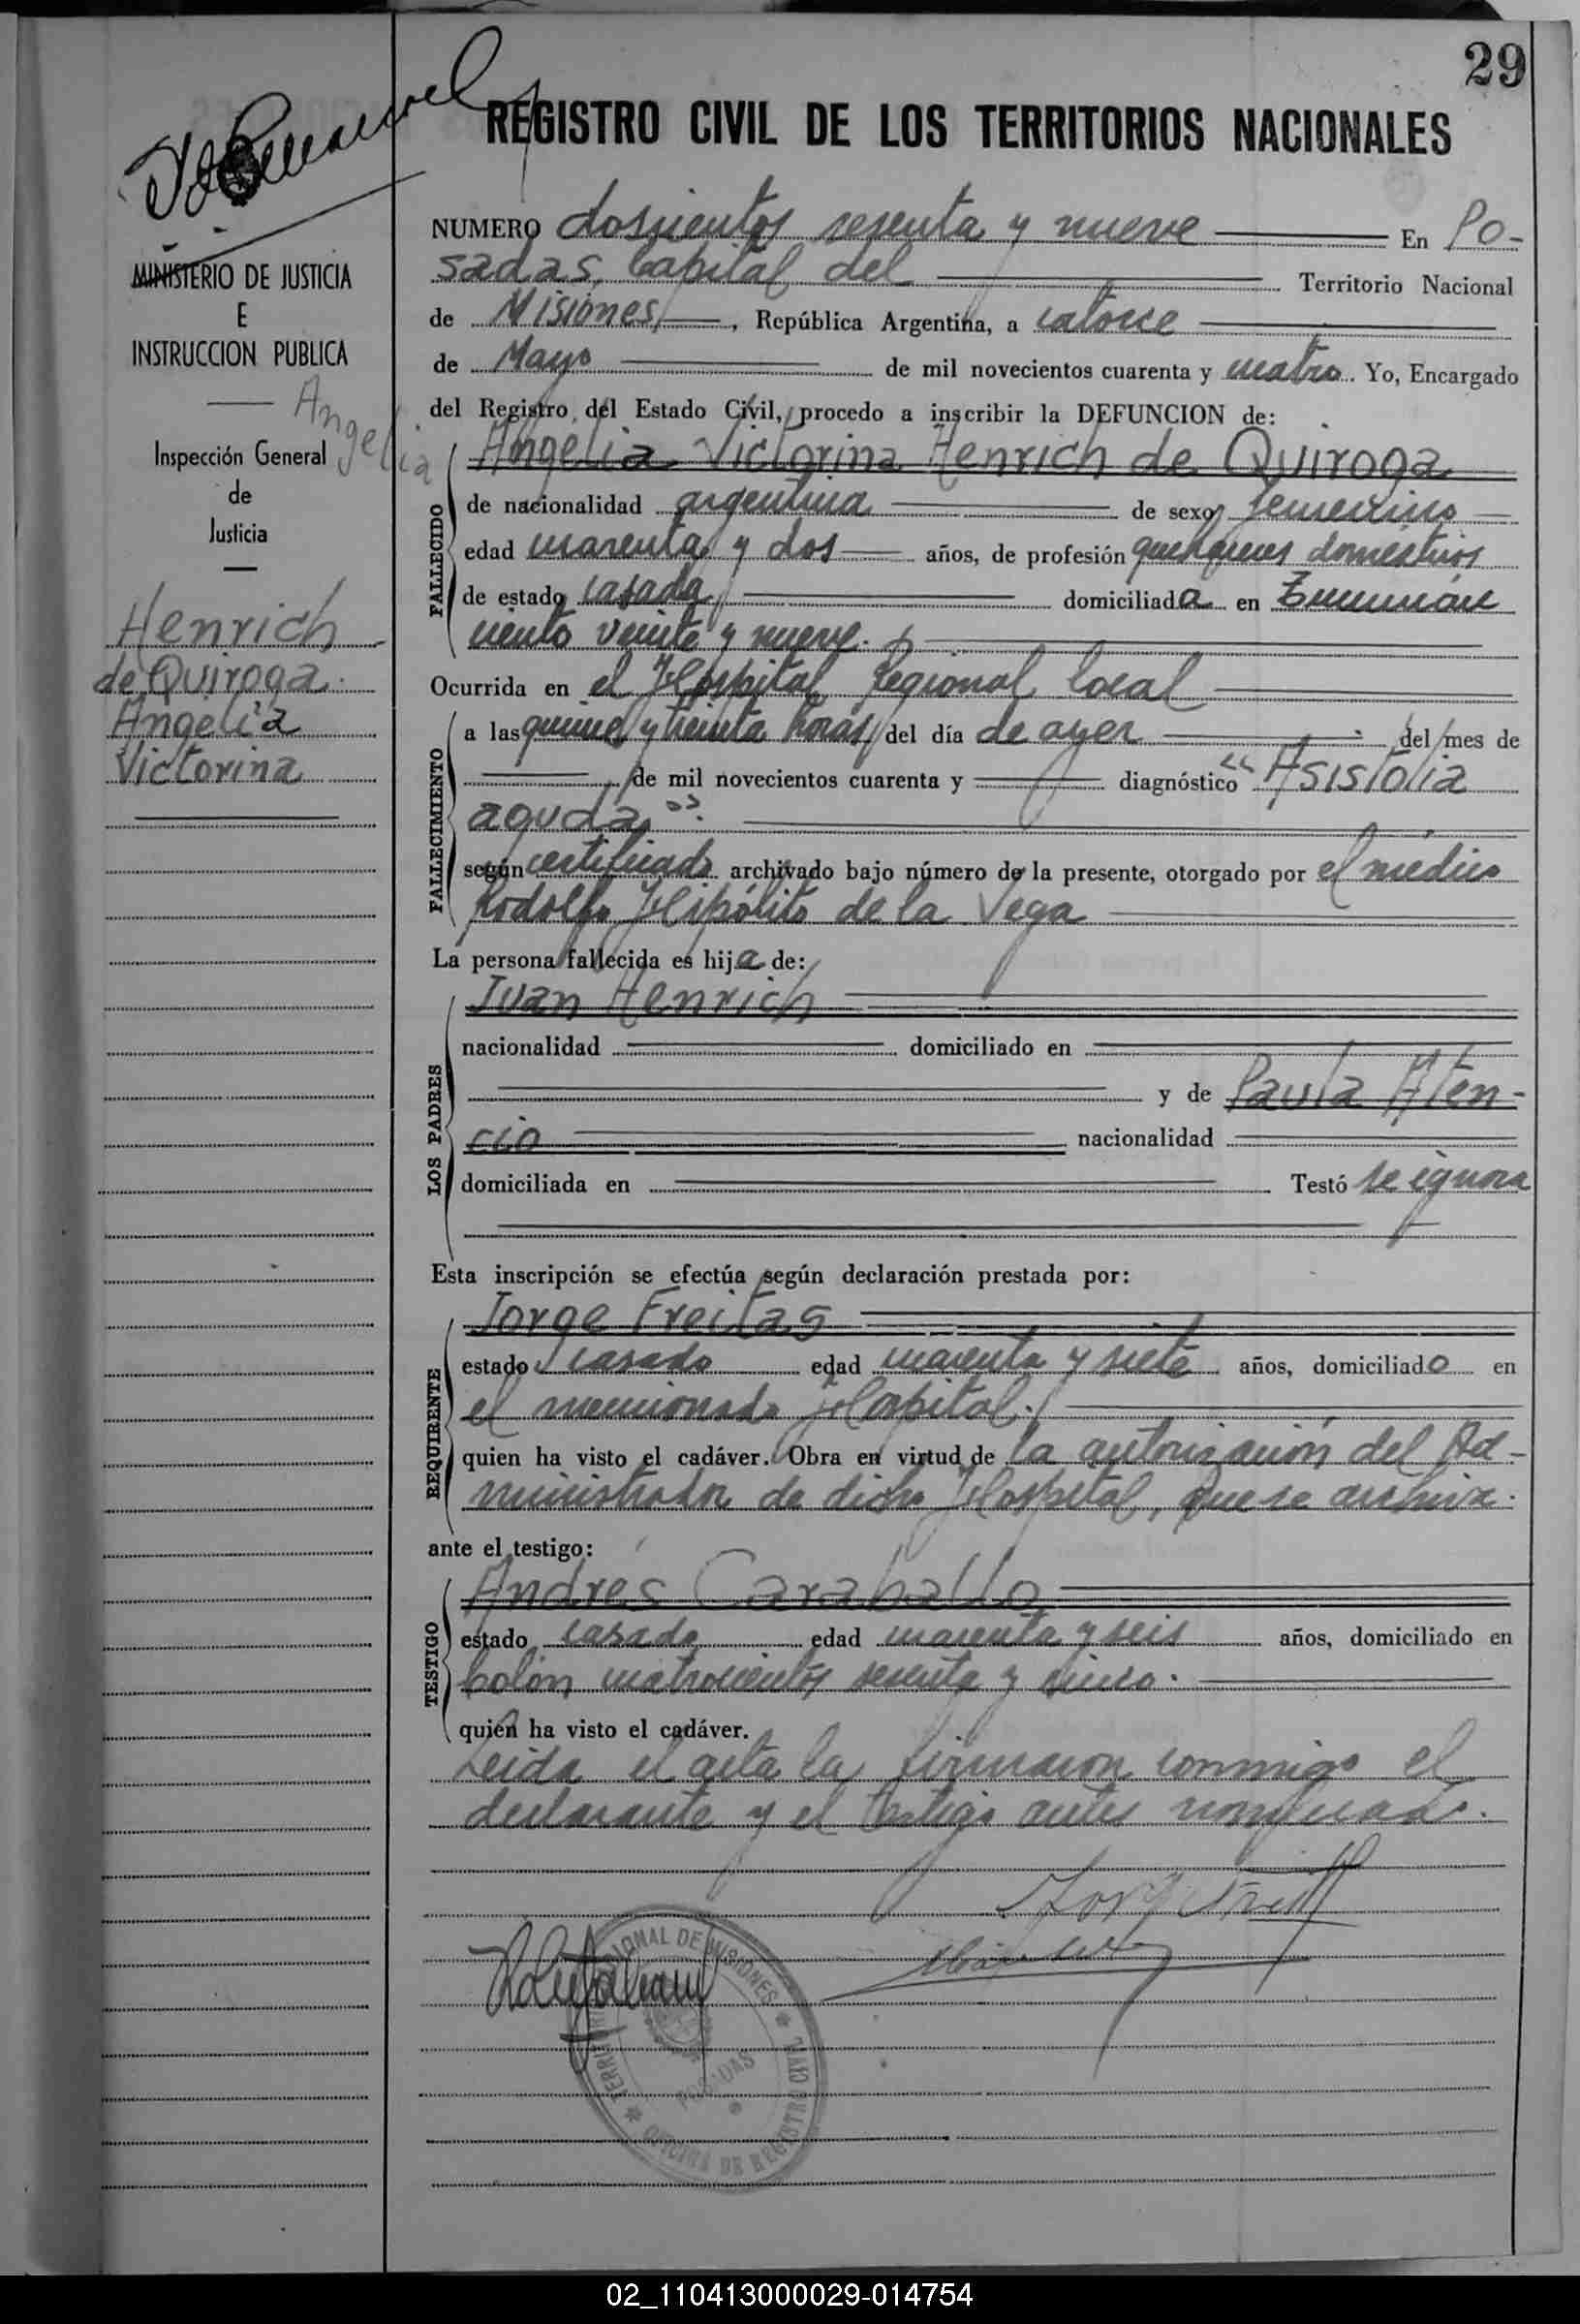 29
REGISTRO CIVIL DE LOS TERRITORIOS NACIONALES
MINISTERIO DE JUSTICIA
E
INSTRUCCION PUBLICA
Angelia
Inspección General
de
Justicia
Henrich
de Quiroga
Angelia
Victorina
NUMERO doscientos sesenta y nueve En Po-
sadas, Capital del Territorio Nacional
de Misiones, República Argentina, a catorce
de Mayo de mil novecientos cuarenta y cuatro. Yo, Encargado
del Registro del Estado Civil, procedo a inscribir la DEFUNCION de:
Angelia Victorina Henrich de Quiroga
FALLECIDO
de nacionalidad argentina de sexo femenino
edad cuarenta y dos años, de profesión quehaceres domésticos
de estado casada domiciliada en Tucumán
ciento veinte y nueve.
Ocurrida en el Hospital Regional local
FALLECIMIENTO
a las quince y treinta horas, del día de ayer del mes de
de mil novecientos cuarenta y diagnóstico "Asistolia
aguda".
según certificado archivado bajo número de la presente, otorgado por el médico
Rodolfo Hipólito de la Vega
La persona fallecida es hija de:
LOS PADRES
Juan Henrich
nacionalidad domiciliado en
y de Paula Aten-
cio nacionalidad
domiciliada en Testó se ignora
Esta inscripción se efectúa según declaración prestada por:
REQUIRENTE
Jorge Freitas
estado casado edad cuarenta y siete años, domiciliado en
el mencionado Hospital.
quien ha visto el cadáver. Obra en virtud de la autorización del Ad-
ministrador de dicho Hospital, que se archiva.
ante el testigo:
TESTIGO
Andrés Caraballo
estado casado edad cuarenta y seis años, domiciliado en
Colón cuatrocientos sesenta y cinco.
quien ha visto el cadáver.
Leida el acta la firmaron conmigo el
declarante y el testigo antes nombrado.
TERRITORIO NACIONAL DE MISIONES
POSADAS
OFICINA DE REGISTRO CIVIL
02_110413000029-014754